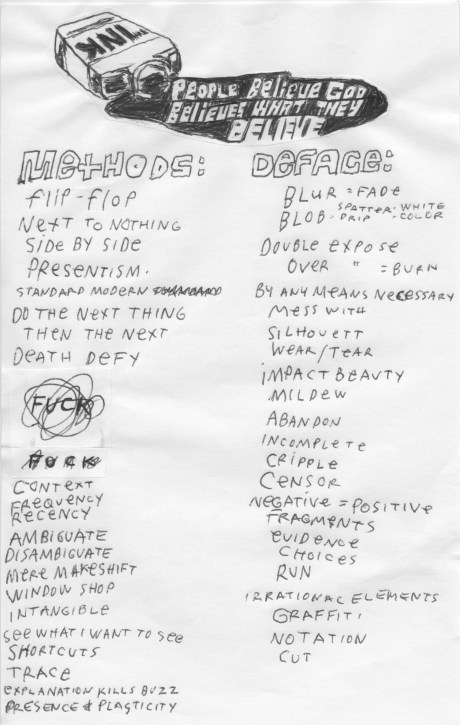 INK
PEOPLE BELIEVE GOD
BELIEVES WHAT THEY
BELIEVE
METHODS:
FLIP-FLOP
NEXT TO NOTHING
SIDE BY SIDE
PRESENTISM.
STANDARD MODERN STANDARD
DO THE NEXT THING
THEN THE NEXT
DEATH DEFY
FUCK
FUCK
CONTEXT
FREQUENCY
RECENCY
AMBIGUATE
DISAMBIGUATE
MERE MAKESHIFT
WINDOW SHOP
INTANGIBLE
SEE WHAT I WANT TO SEE
SHORTCUTS
TRACE
EXPLANATION KILLS BUZZ
PRESENCE & PLASTICITY
DEFACE:
BLUR = FADE
SPATTER · WHITE
BLOB · DRIP · COLOR
DOUBLE EXPOSE
OVER " = BURN
BY ANY MEANS NECESSARY
MESS WITH
SILHOUETT
WEAR/TEAR
IMPACT BEAUTY
MILDEW
ABANDON
INCOMPLETE
CRIPPLE
CENSOR
NEGATIVE = POSITIVE
FRAGMENTS
EVIDENCE
CHOICES
RUN
IRRATIONAL ELEMENTS
GRAFFITI
NOTATION
CUT